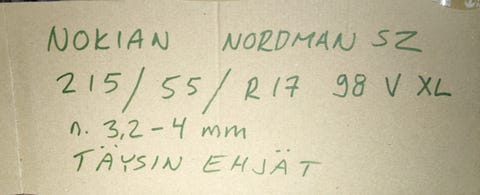 NOKIAN NORDMAN SZ
215/55/R17 98 V XL
n. 3,2-4 mm
TÄYSIN EHJÄT